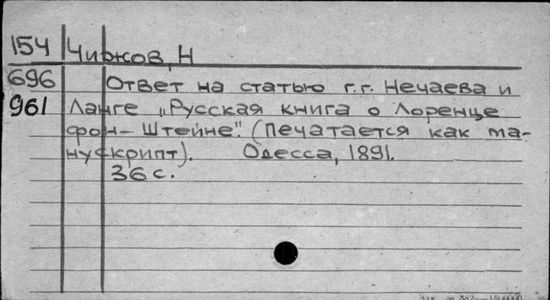 154 Чижов, Н
696 Ответ на статью г.г. Нечаева и
961 Ланге „Русская книга о Лоренце
фон-Штейне". (Печатается как ма-
нускрипт). Одесса, 1891.
36 с.